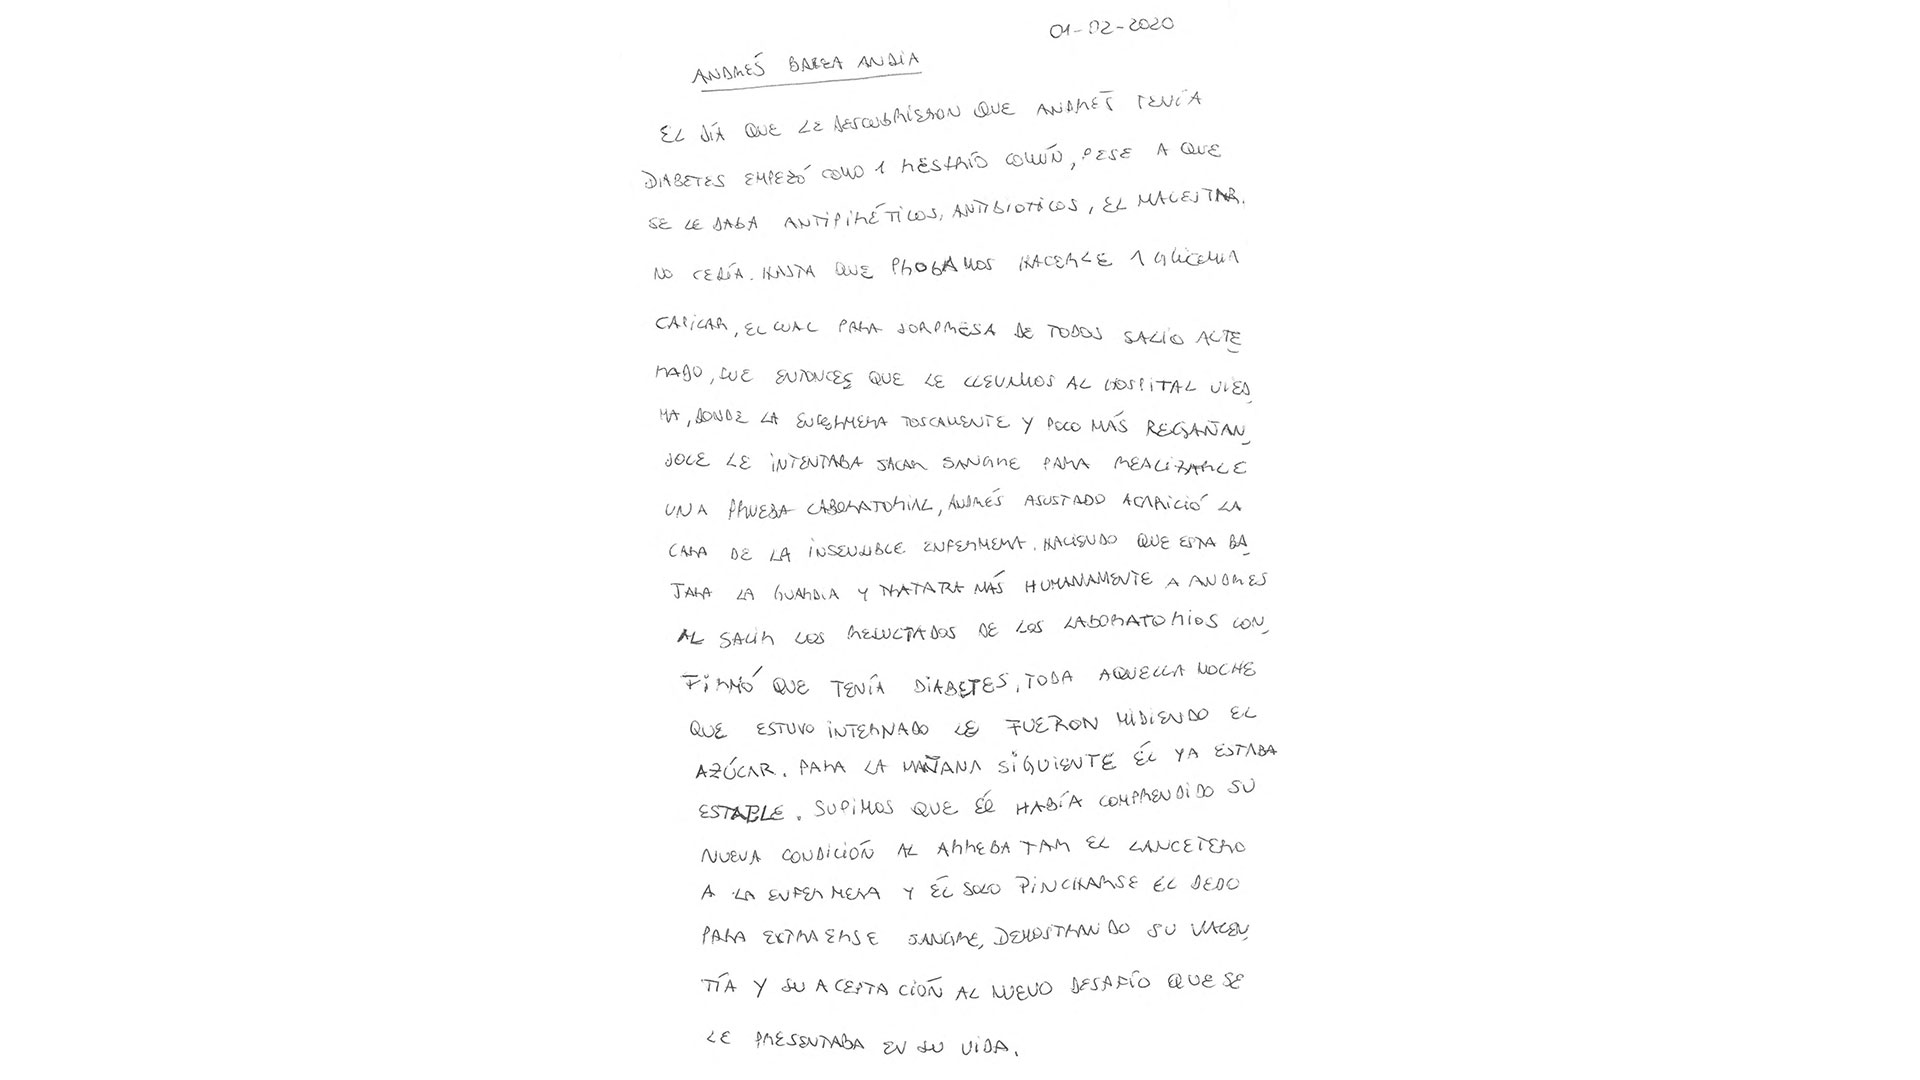 01-02-2020
ANDRÉS BAREA ANDIA
EL DÍA QUE LE DESCUBRIERON QUE ANDRÉS TENÍA
DIABETES EMPEZÓ COMO 1 RESFRÍO COMÚN, PESE A QUE
SE LE DABA ANTIPIRÉTICOS, ANTIBIOTICOS, EL MALESTAR.
NO CEDÍA. HASTA QUE PROBAMOS HACERLE 1 GLICEMIA
CAPILAR, EL CUAL PARA SORPRESA DE TODOS SALIÓ ALTE
RADO, FUE ENTONCES QUE LE LLEVAMOS AL HOSPITAL VIED_
MA, DONDE LA ENFERMERA TOSCAMENTE Y POCO MÁS REGAÑAN_
DOLE LE INTENTABA SACAR SANGRE PARA REALIZARLE
UNA PRUEBA LABORATORIAL, ANDRÉS ASUSTADO ACARICIÓ LA
CARA DE LA INSENSIBLE ENFERMERA. HACIENDO QUE ESTA BA_
JARA LA GUARDIA Y TRATARA MÁS HUMANAMENTE A ANDRES
AL SALIR LOS RESULTADOS DE LOS LABORATORIOS CON_
FIRMÓ QUE TENÍA DIABETES, TODA AQUELLA NOCHE
QUE ESTUVO INTERNADO LE FUERON MIDIENDO EL
AZÚCAR. PARA LA MAÑANA SIGUIENTE ÉL YA ESTABA
ESTABLE. SUPIMOS QUE ÉL HABÍA COMPRENDIDO SU
NUEVA CONDICIÓN AL ARREBATAR EL LANCETERO
A LA ENFERMERA Y ÉL SOLO PINCHARSE EL DEDO
PARA EXTRAERSE SANGRE, DEMOSTRANDO SU VALEN_
TÍA Y SU ACEPTACIÓN AL NUEVO DESAFÍO QUE SE
LE PRESENTABA EN SU VIDA.